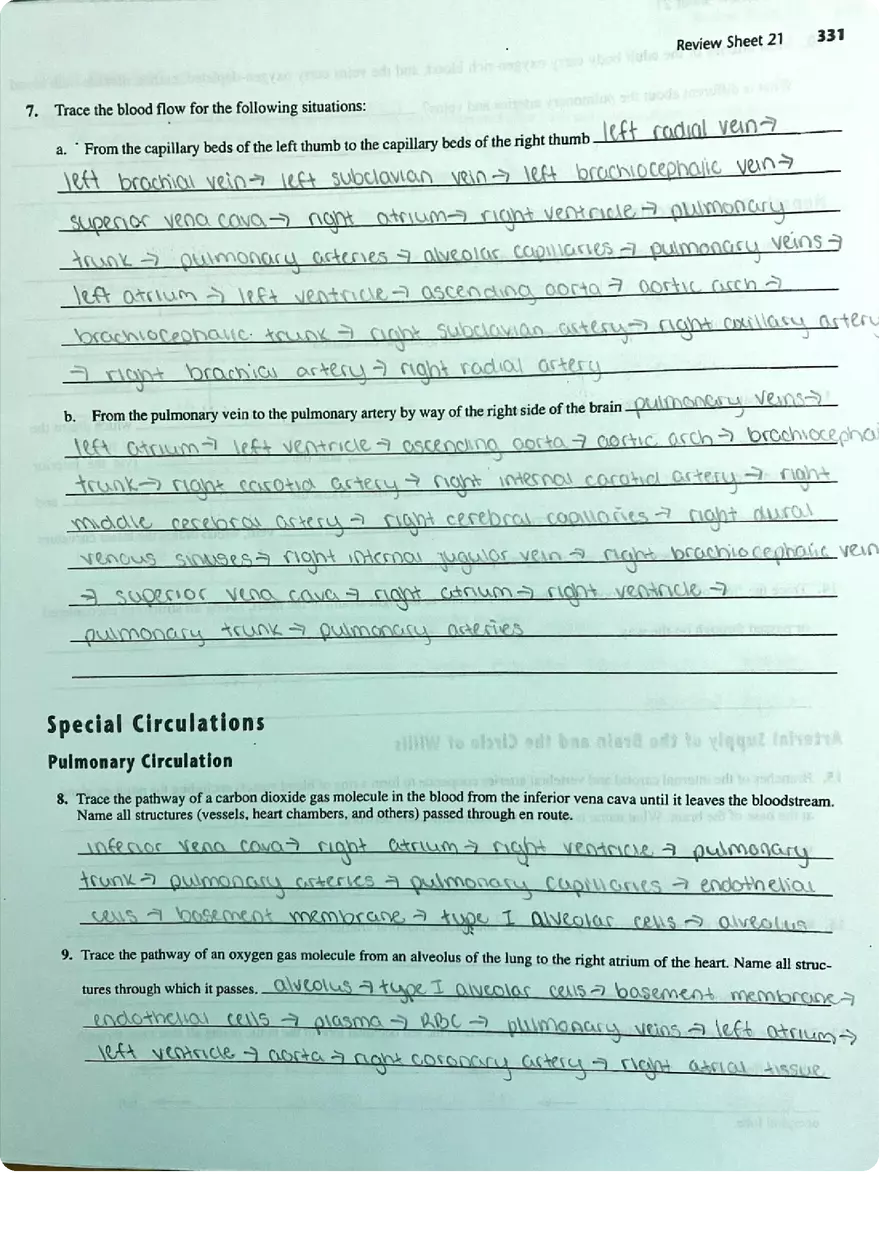 Review Sheet 21 331
7. Trace the blood flow for the following situations:
a. From the capillary beds of the left thumb to the capillary beds of the right thumb left radial vein→
left brachial vein→ left subclavian vein→ left brachiocephalic vein→
superior vena cava→ right atrium→ right ventricle→ pulmonary
trunk → pulmonary arteries → alveolar capillaries → pulmonary veins→
left atrium → left ventricle→ ascending aorta→ aortic arch →
brachiocephalic trunk → right subclavian artery→ right axillary artery
→ right brachial artery→ right radial artery
b. From the pulmonary vein to the pulmonary artery by way of the right side of the brain pulmonary veins→
left atrium→ left ventricle → ascending aorta→ aortic arch→ brachiocepha
trunk→ right carotid artery→ right internal carotid artery→ right
middle cerebral artery→ right cerebral capillaries→ right dural
venous sinuses→ right internal jugular vein → right brachiocephalic vein
→ superior vena cava→ right atrium→ right ventricle →
pulmonary trunk → pulmonary arteries
Special Circulations
Pulmonary Circulation
8. Trace the pathway of a carbon dioxide gas molecule in the blood from the inferior vena cava until it leaves the bloodstream.
Name all structures (vessels, heart chambers, and others) passed through en route.
inferior vena cava→ right atrium→ right ventricle → pulmonary
trunk→ pulmonary arteries → pulmonary capillaries → endothelial
cells → basement membrane→ type I alveolar cells → alveolus
9. Trace the pathway of an oxygen gas molecule from an alveolus of the lung to the right atrium of the heart. Name all struc-
tures through which it passes. alveolus→ type I alveolar cells→ basement membrane→
endothelial cells → plasma → RBC → pulmonary veins→ left atrium→
left ventricle → aorta→ right coronary artery → right atrial tissue